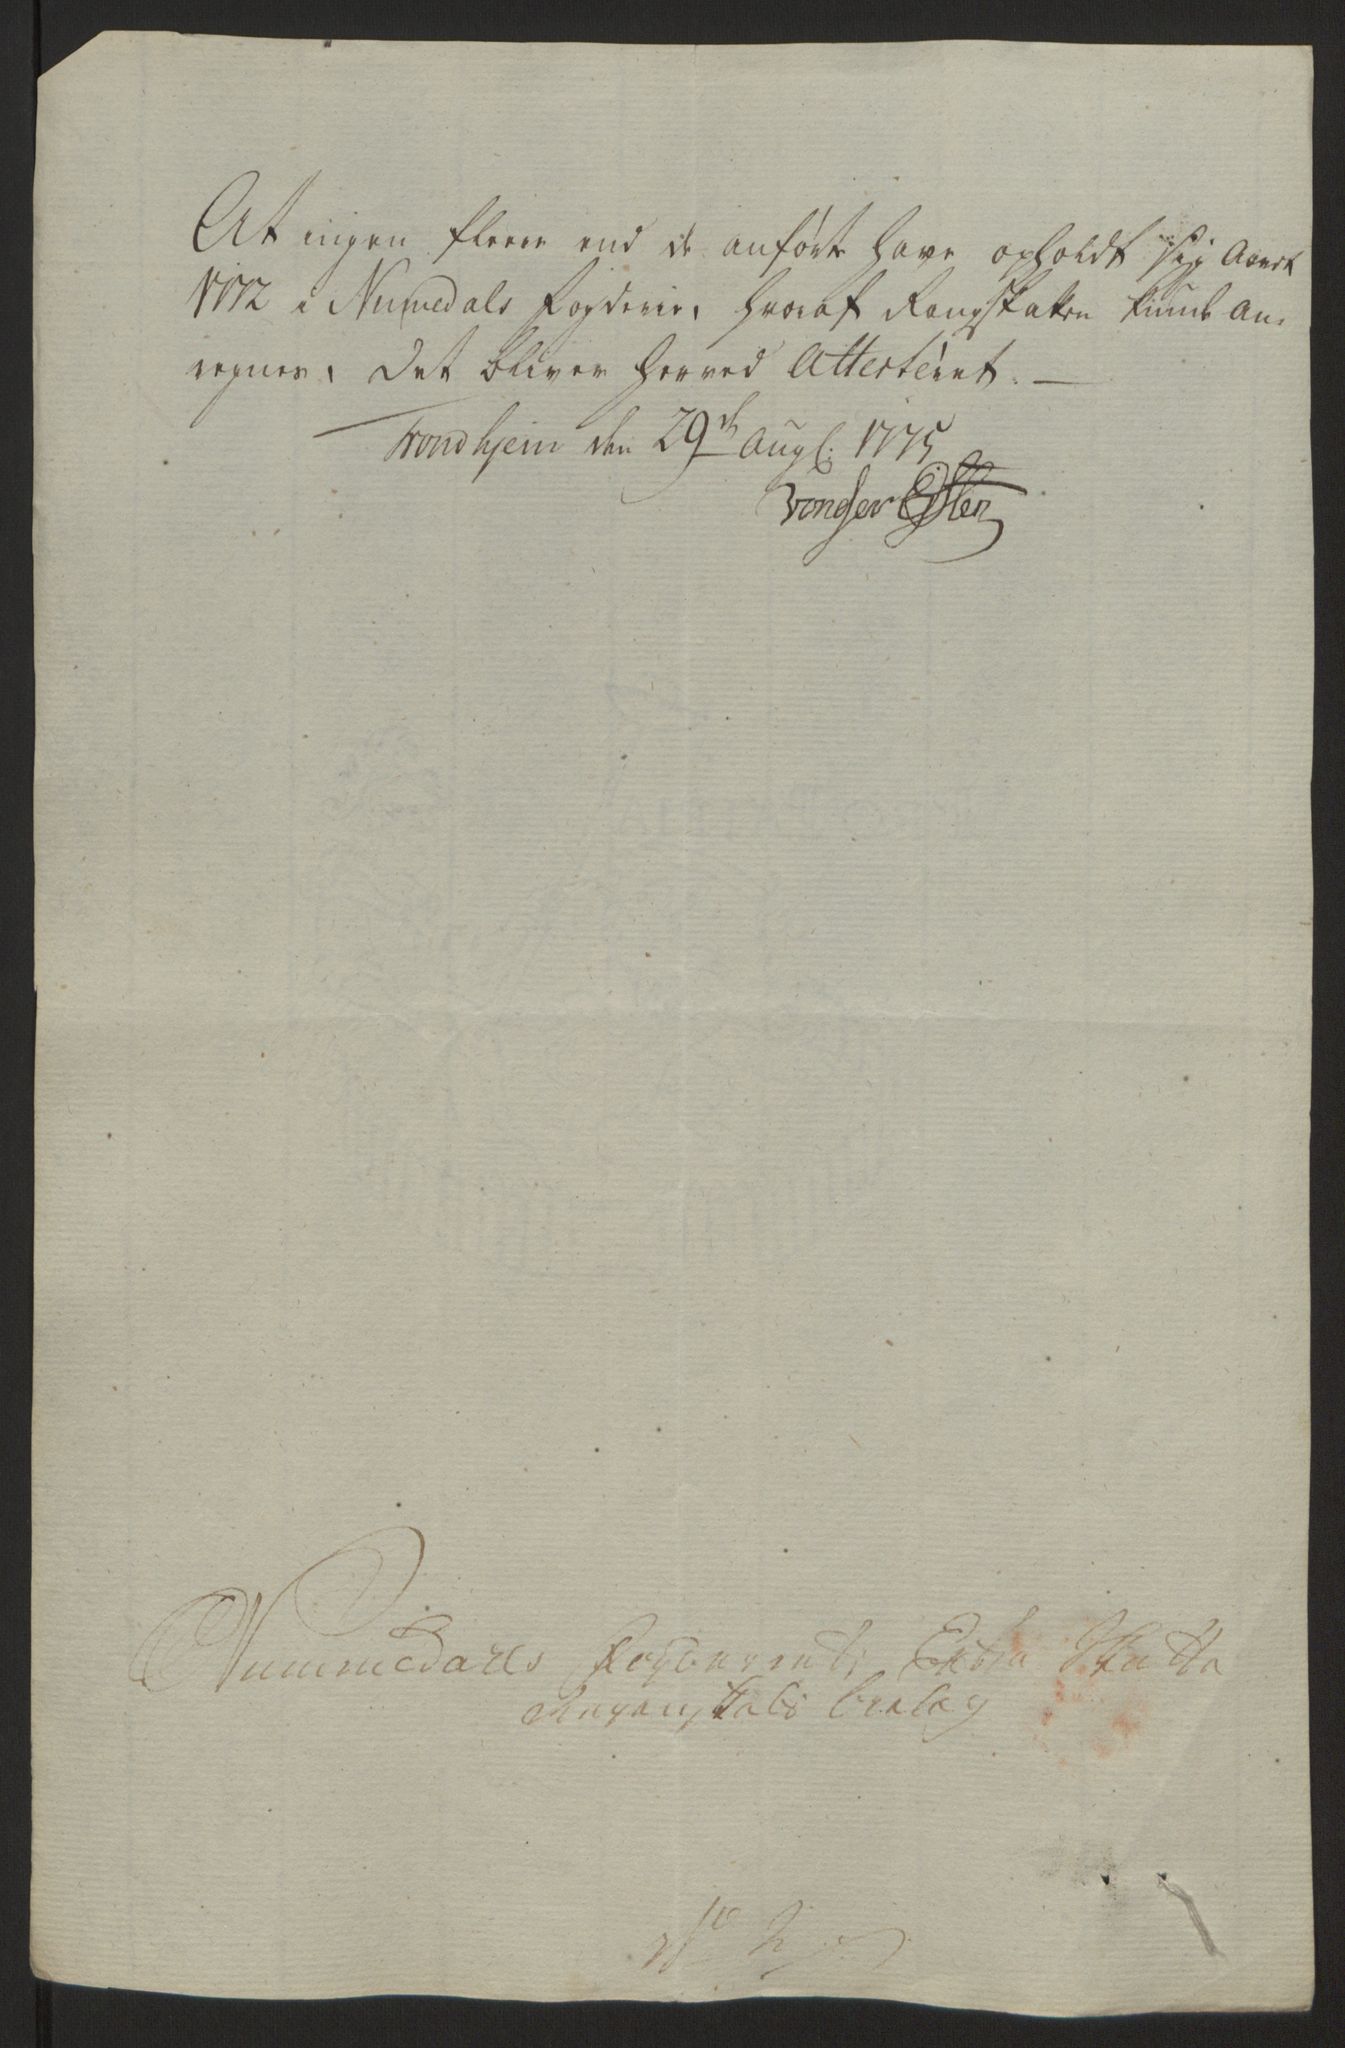 At ingen fleere end de anførte have opholdt sig Aaret
1772 i Numedals Fogderie, hvoraf Rangskatten kunde an-
regnes, Det bliver herved Attesteret. —
Trondhjem den 29de Augs: 1775
Nummedahls Fogderiets Extra Skatte
Regenskabs bielag
No